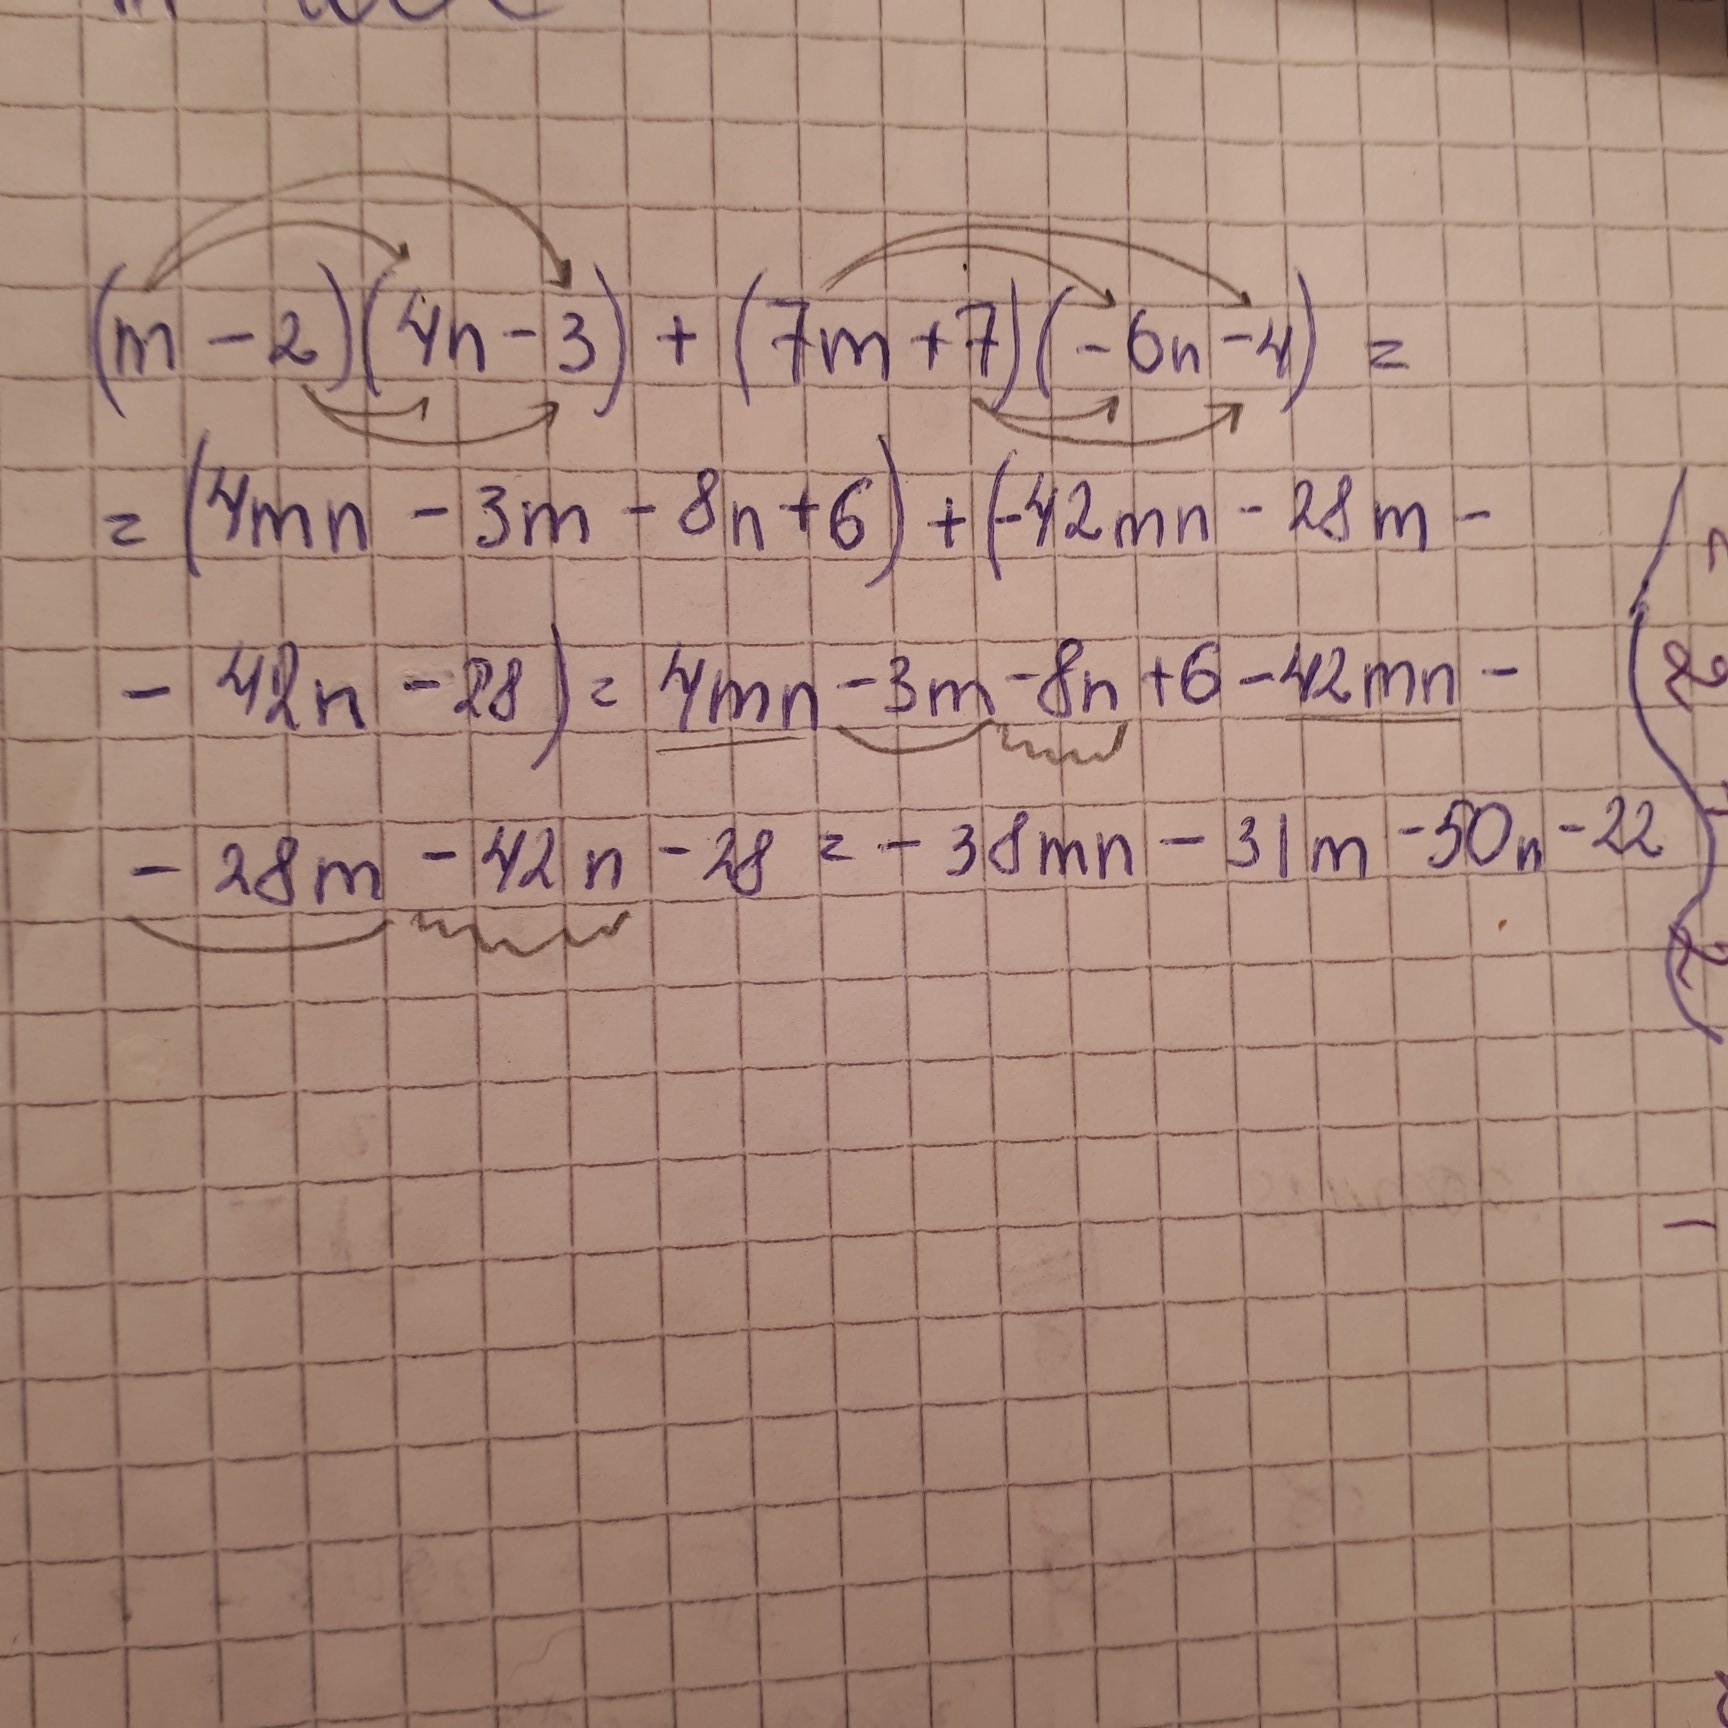 (m - 2)(4n - 3) + (7m + 7)(-6n - 4) =
= (4mn - 3m - 8n + 6) + (-42mn - 28m -
- 42n - 28) = 4mn - 3m - 8n + 6 - 42mn -
- 28m - 42n - 28 = - 38mn - 31m - 50n - 22